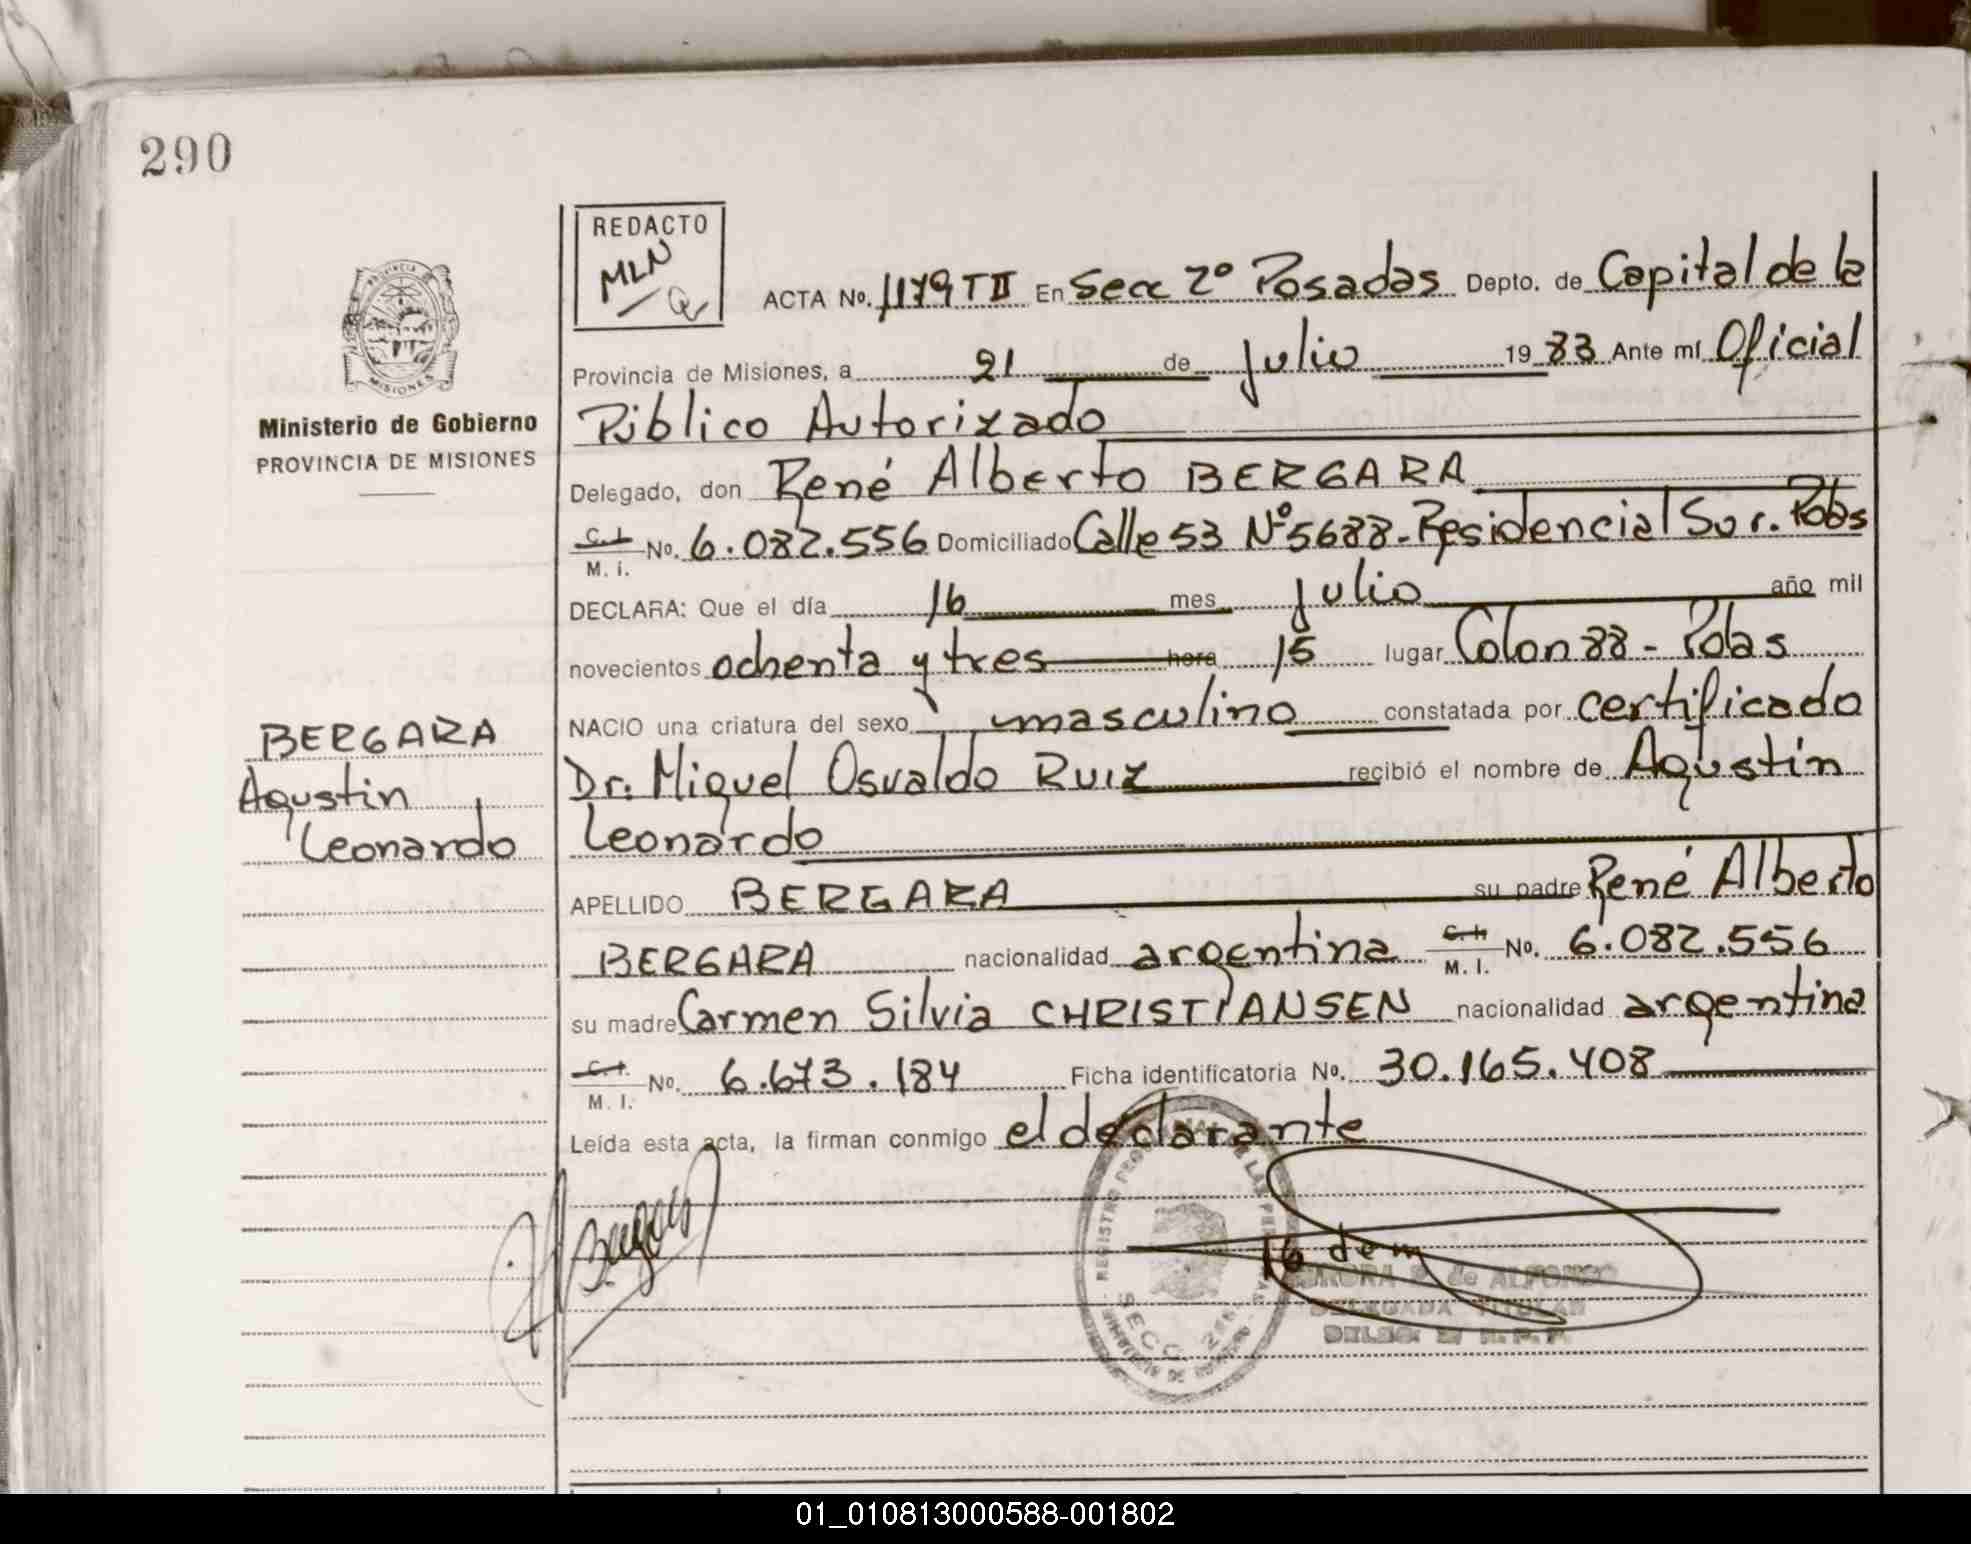 290
REDACTO
MLN
ACTA No. 1179 T II En Secc 2º Posadas Depto. de Capital de la
Provincia de Misiones, a 21 de Julio 19 83 Ante mí Oficial
Público Autorizado
Ministerio de Gobierno
PROVINCIA DE MISIONES
Delegado, don René Alberto BERGARA
C. I. M. i. No. 6.082.556 Domiciliado Calle 53 Nº 5688-Residencial Sur. Pdas
DECLARA: Que el día 16 mes Julio año mil
novecientos ochenta y tres hora 15 lugar Colon 88 - Pdas
NACIO una criatura del sexo masculino constatada por certificado
Dr. Miguel Osvaldo Ruiz recibió el nombre de Agustin
Leonardo
BERGARA
Agustin
Leonardo
APELLIDO BERGARA su padre René Alberto
BERGARA nacionalidad argentina C. I. M. I. No. 6.082.556
su madre Carmen Silvia CHRISTIANSEN nacionalidad argentina
C. I. M. I. No. 6.673.184 Ficha identificatoria No. 30.165.408
Leída esta acta, la firman conmigo el declarante
PROVINCIA DE MISIONES
REGISTRO DE LAS PERSONAS
SECC.
de ALFONSO
DELEGADA TITULAR
01_010813000588-001802